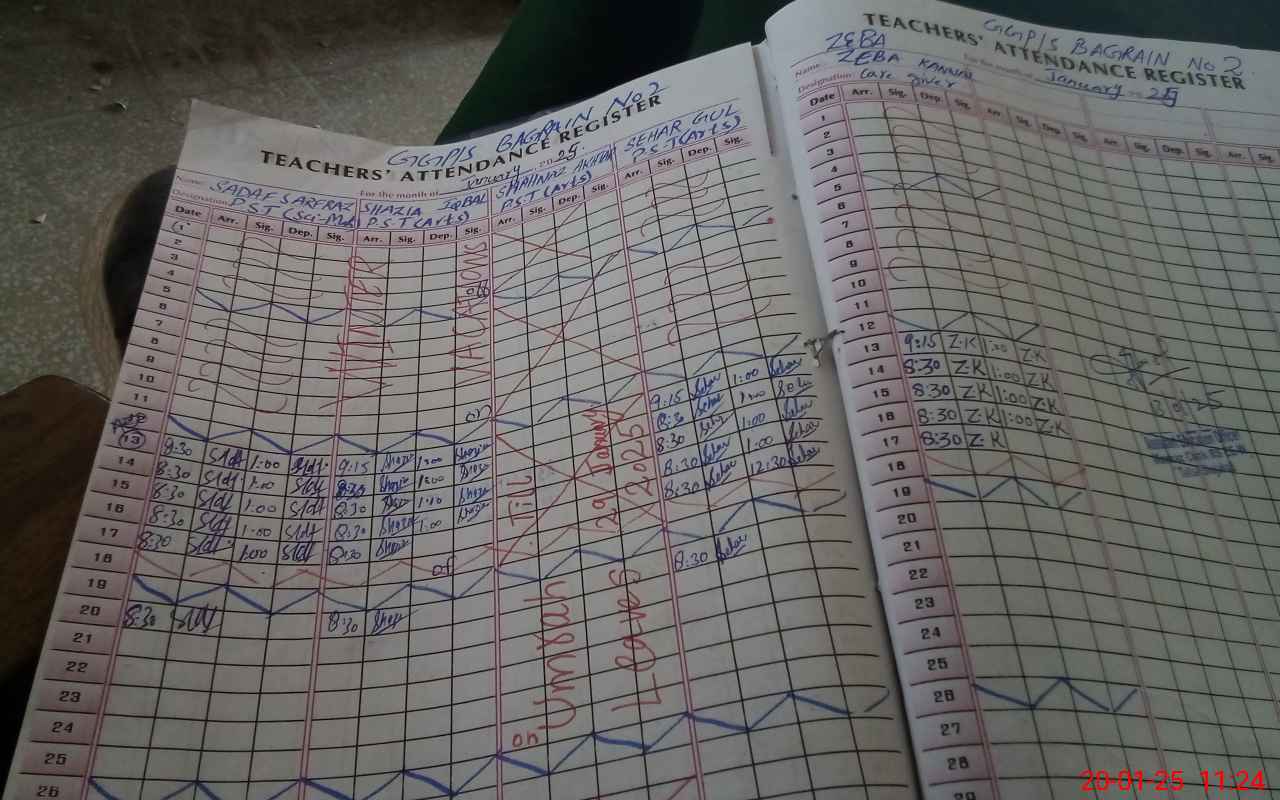 GGP/S BAGRAIN No 2
TEACHERS' ATTENDANCE REGISTER
Name: SADAF SARFRAZ For the month of January 2025.
SHAZIA IQBAL SHAHNAZ AKHTAR SEHAR GUL
Designation: P.S.T (Sci-Math) P.S.T (Arts) P.S.T (Arts) P.S.T (Arts)
Date Arr. Sig. Dep. Sig. Arr. Sig. Dep. Sig. Arr. Sig. Dep. Sig. Arr. Sig. Dep. Sig.
1
2
3
4
5
6
7
8
9
10
11
WINTER VACATIONS
13 9:30 1:00 9:15 1:00 9:15 Sehar 1:00 Sehar
14 8:30 1:00 8:30 1:00 8:30 Sehar 1:00 Sehar
15 8:30 1:00 8:30 1:00 8:30 Sehar 1:00 Sehar
16 8:30 1:00 8:30 1:00 8:30 Sehar 1:00 Sehar
17 8:30 1:00 8:30 8:30 Sehar 12:30 Sehar
18
19
20 8:30 8:30 8:30 Sehar
21
22
23
24
25
26
on Umrah Leaves
Till 29 January 2025
GGP/S BAGRAIN No 2
TEACHERS' ATTENDANCE REGISTER
ZEBA
Name: ZEBA KANWAL For the month of January 2025
Designation: Care giver
Date Arr. Sig. Dep. Sig. Arr. Sig. Dep. Sig. Arr. Sig. Dep. Sig. Arr. Sig.
1
2
3
4
5
6
7
8
9
10
11
12
13 9:15 Z.K 1:00 Z.K
14 8:30 Z.K 1:00 Z.K
15 8:30 Z.K 1:00 Z.K
16 8:30 Z.K 1:00 Z.K
17 8:30 Z.K
18
19
20
21
22
23
24
25
26
27
28
29
20-01-25 11:24